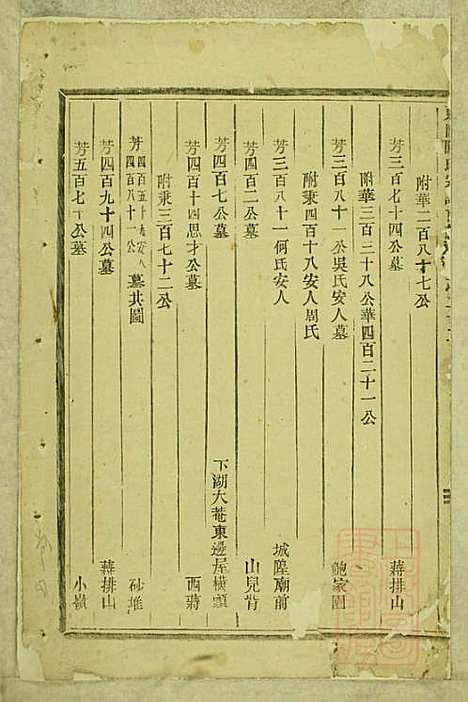 附華二百八十七公
芳三百七十四公墓 蔣排山
附華三百三十八公華四百二十一公
芳三百八十一公吳氏安人墓 鮑家園
附秉四百十八安人周氏
芳三百八十一何氏安人 城隍廟前
芳四百二公墓 山兒背
芳四百七公墓 下湖大菴東邊屋橫頭
芳四百十四思才公墓 西蔣
附秉三百七十二公
芳四百五十 安人四百八十一公墓共圖 砂堆
芳四百九十四公墓 蔣排山
芳五百七十公墓 小嶺